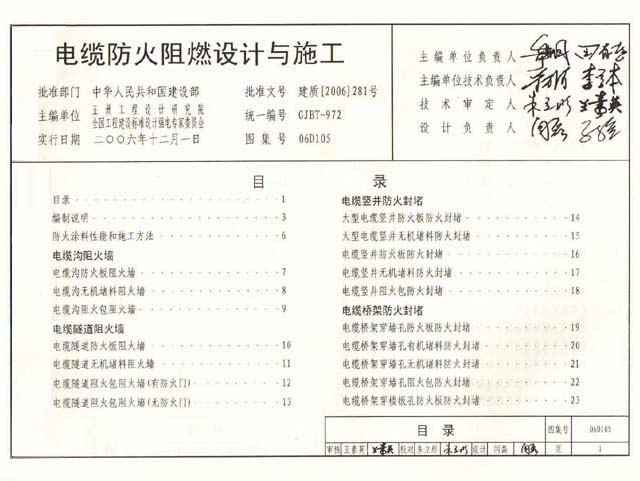 电缆防火阻燃设计与施工
批准部门 中华人民共和国建设部 批准文号 建质[2006]281号
主编单位 五洲工程设计研究院
全国工程建设标准设计强电专家委员会 统一编号 GJBT-972
实行日期 二〇〇六年十二月一日 图集号 06D105
主编单位负责人
主编单位技术负责人
技术审定人
设计负责人
目 录
目录 1
编制说明 3
防火涂料性能和施工方法 6
电缆沟阻火墙
电缆沟防火板阻火墙 7
电缆沟无机堵料阻火墙 8
电缆沟阻火包阻火墙 9
电缆隧道阻火墙
电缆隧道防火板阻火墙 10
电缆隧道无机堵料阻火墙 11
电缆隧道阻火包阻火墙(有防火门) 12
电缆隧道阻火包阻火墙(无防火门) 13
电缆竖井防火封堵
大型电缆竖井防火板防火封堵 14
大型电缆竖井无机堵料防火封堵 15
电缆竖井防火板防火封堵 16
电缆竖井无机堵料防火封堵 17
电缆竖井阻火包防火封堵 18
电缆桥架防火封堵
电缆桥架穿墙孔防火板防火封堵 19
电缆桥架穿墙孔有机堵料防火封堵 20
电缆桥架穿墙孔无机堵料防火封堵 21
电缆桥架穿墙孔阻火包防火封堵 22
电缆桥架穿楼板孔防火板防火封堵 23
目录 图集号 06D105
审核 王素英 校对 朱立彤 设计 闫磊 页 1